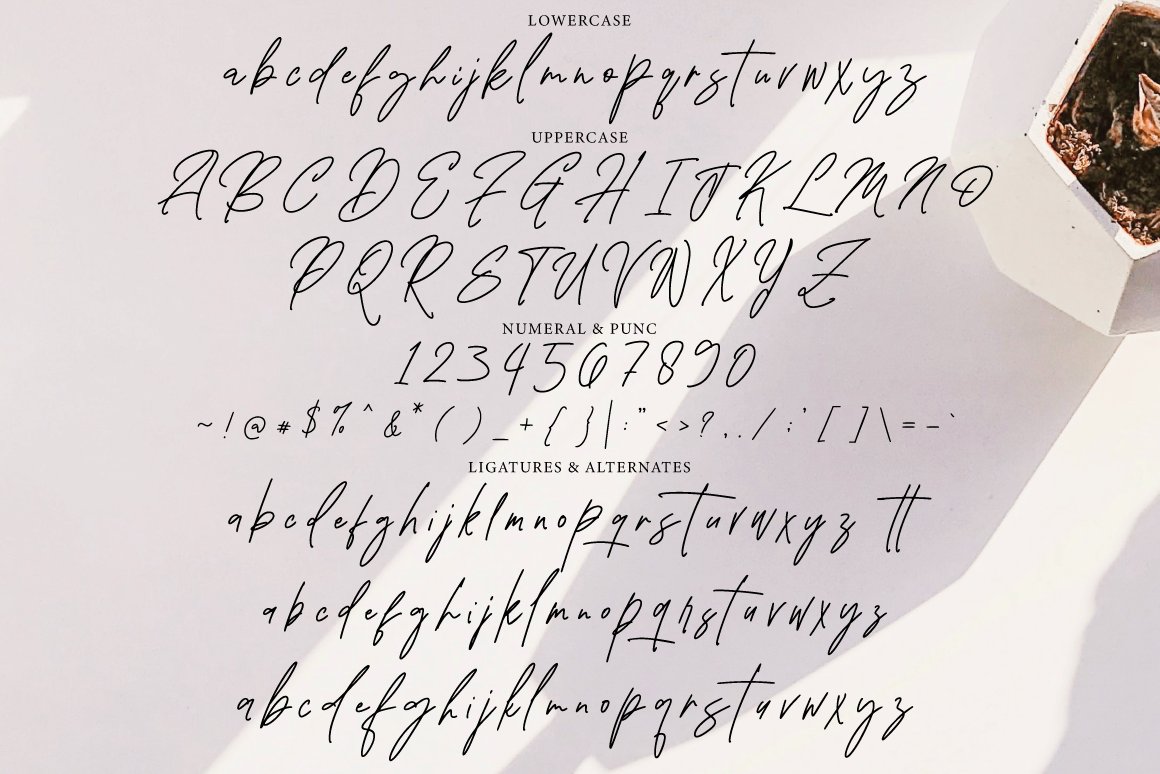 LOWERCASE
abcdefghijklmnopqrstuvwxyz
UPPERCASE
ABCDEFGHIJKLMNO
PQRSTUVWXYZ
NUMERAL & PUNC
1234567890
~!@#$%^&*()_+{}|:"<>?,./;'[]\=-`
LIGATURES & ALTERNATES
abcdefghijklmnopqrstuvwxyz tt
abcdefghijklmnopqrstuvwxyz
abcdefghijklmnopqrstuvwxyz